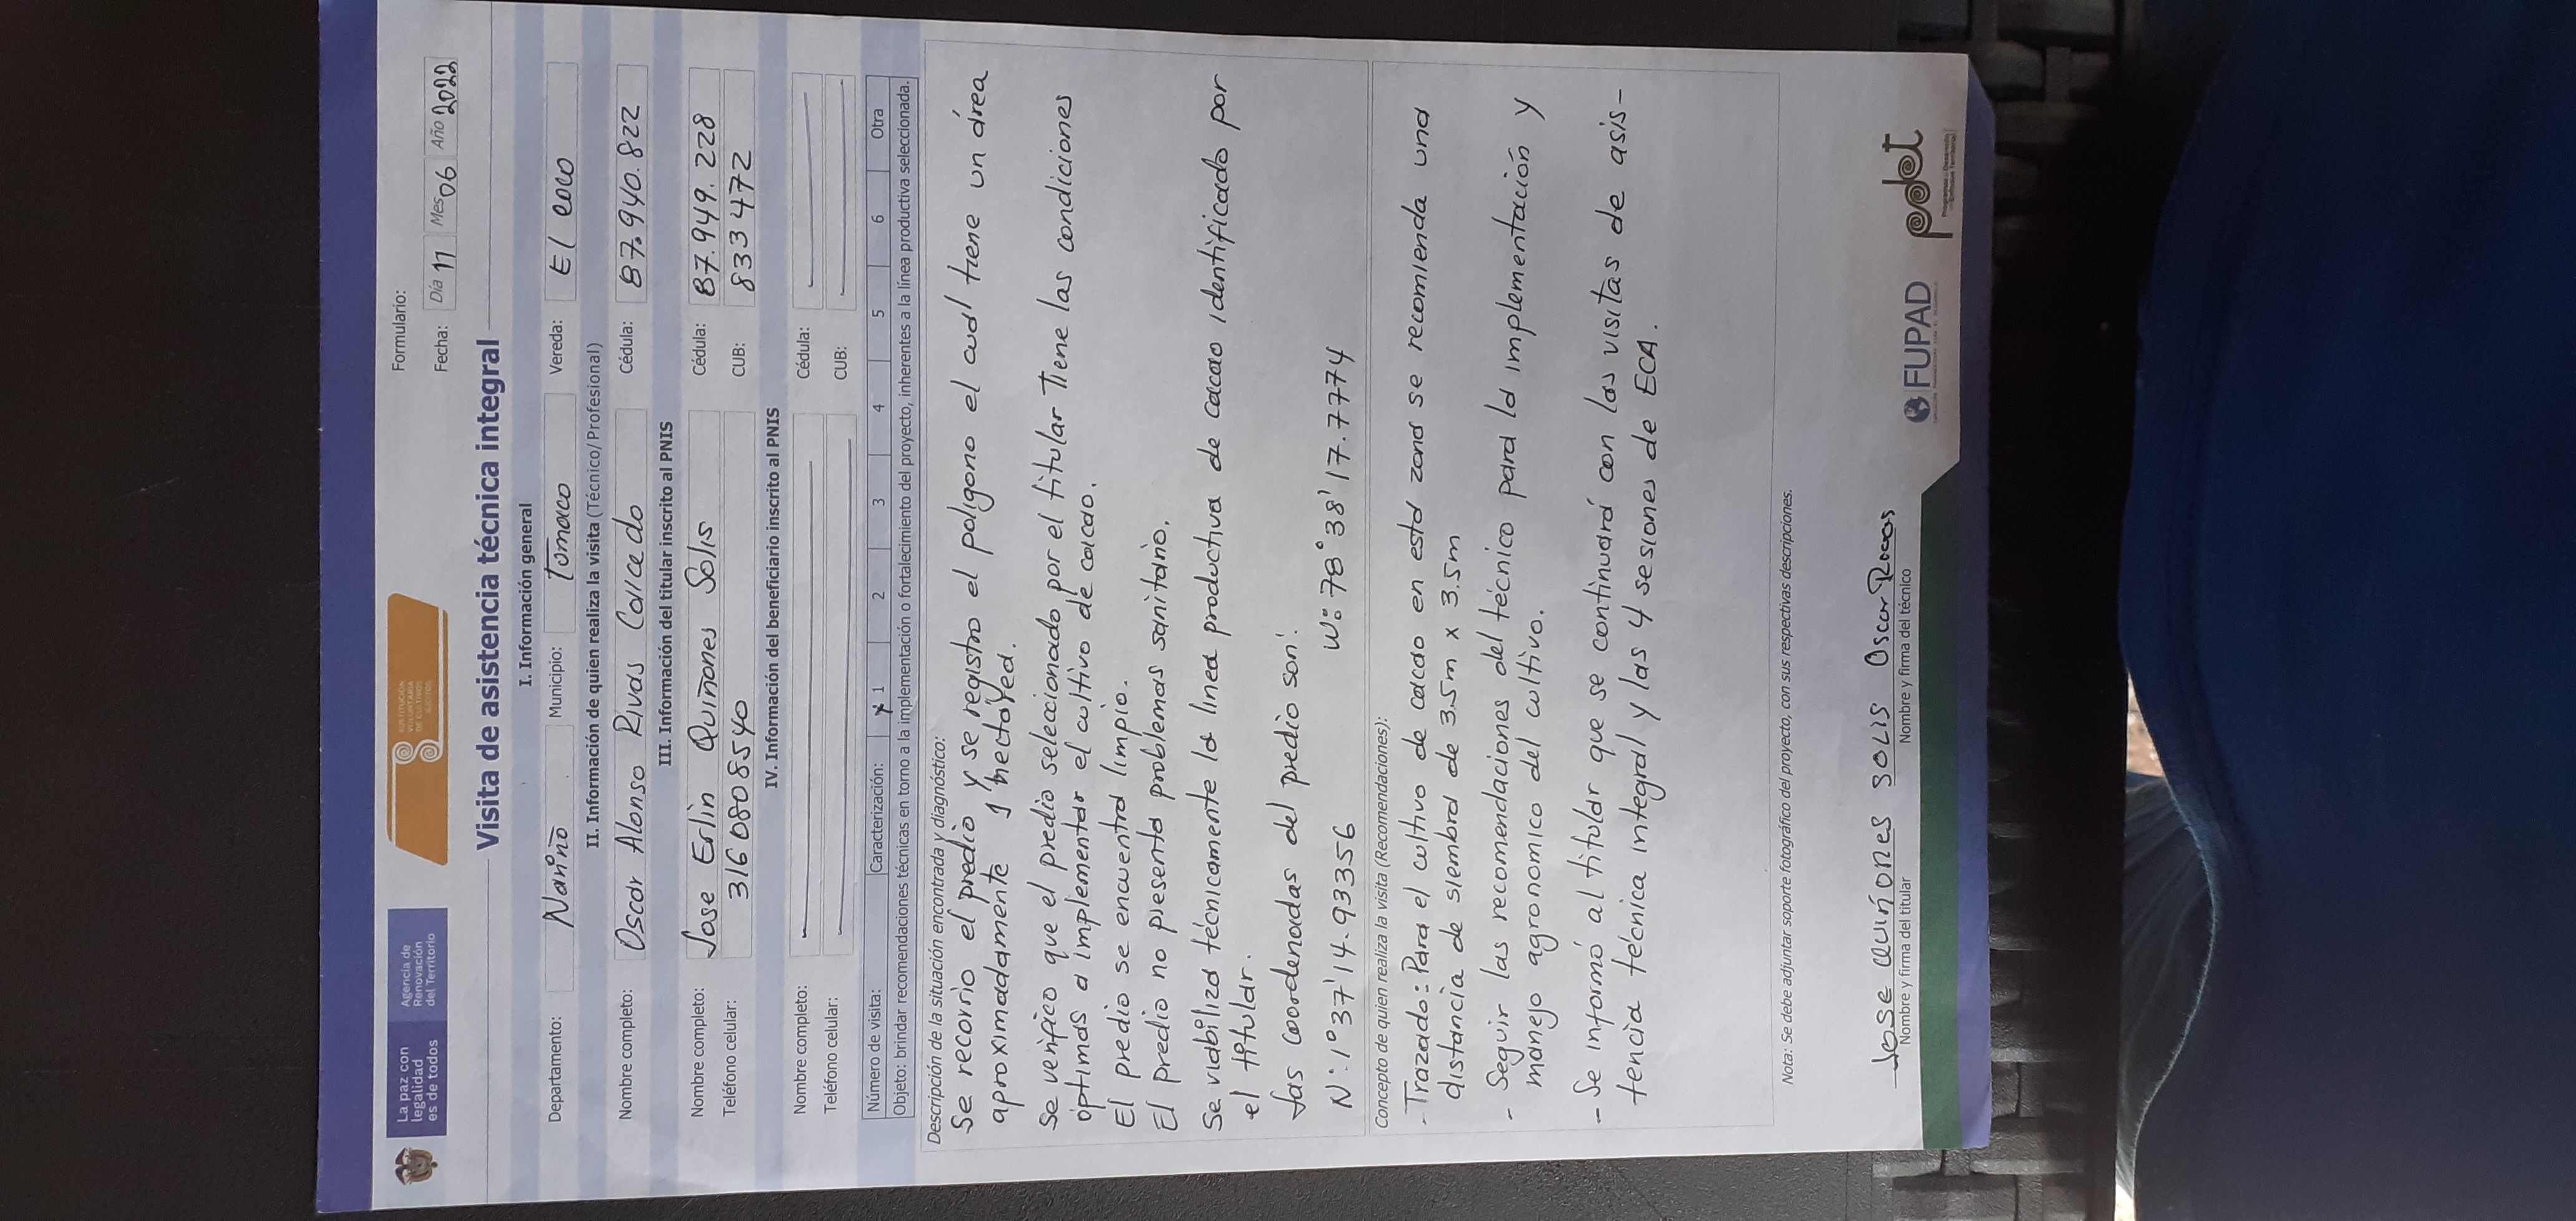 La paz con
legalidad
es de todos
Agencia de
Renovación
del Territorio
SUSTITUCIÓN
VOLUNTARIA
DE CULTIVOS
ILÍCITOS
Formulario:
Fecha: Día 11 Mes 06 Año 2022
Visita de asistencia técnica integral
I. Información general
Departamento: Nariño Municipio: Tumaco Vereda: El coco
II. Información de quien realiza la visita (Técnico/Profesional)
Nombre completo: Oscar Alonso Rivas Caicedo Cédula: 87.940.822
III. Información del titular inscrito al PNIS
Nombre completo: Jose Erlin Quiñones Solis Cédula: 87.949.228
Teléfono celular: 3160808540 CUB: 833472
IV. Información del beneficiario inscrito al PNIS
Nombre completo: Cédula:
Teléfono celular: CUB:
Número de visita: Caracterización: x 1 2 3 4 5 6 Otra
Objeto: brindar recomendaciones técnicas en torno a la implementación o fortalecimiento del proyecto, inherentes a la línea productiva seleccionada.
Descripción de la situación encontrada y diagnóstico:
Se recorrio el predio y se registro el poligono el cual tiene un área
aproximadamente 1 hectárea.
Se verifico que el predio seleccionado por el titular Tiene las condiciones
óptimas a implementar el cultivo de cacao.
El predio se encuentra limpio.
El predio no presenta problemas sanitario.
Se viabilizo técnicamente la linea productiva de cacao identificado por
el titular.
las coordenadas del predio son:
N: 1°37'14.93356 W: 78°38'17.7774
Concepto de quien realiza la visita (Recomendaciones):
- Trazado: Para el cultivo de cacao en esta zona se recomienda una
distancia de siembra de 3.5m x 3.5m
- Seguir las recomendaciones del técnico para la implementación y
manejo agronomico del cultivo.
- Se informó al titular que se continuará con las visitas de asis-
tencia técnica integral y las 4 sesiones de ECA.
Nota: Se debe adjuntar soporte fotográfico del proyecto, con sus respectivas descripciones.
Jose quiñones solis Oscar Rivas
Nombre y firma del titular Nombre y firma del técnico
FUPAD
pdet